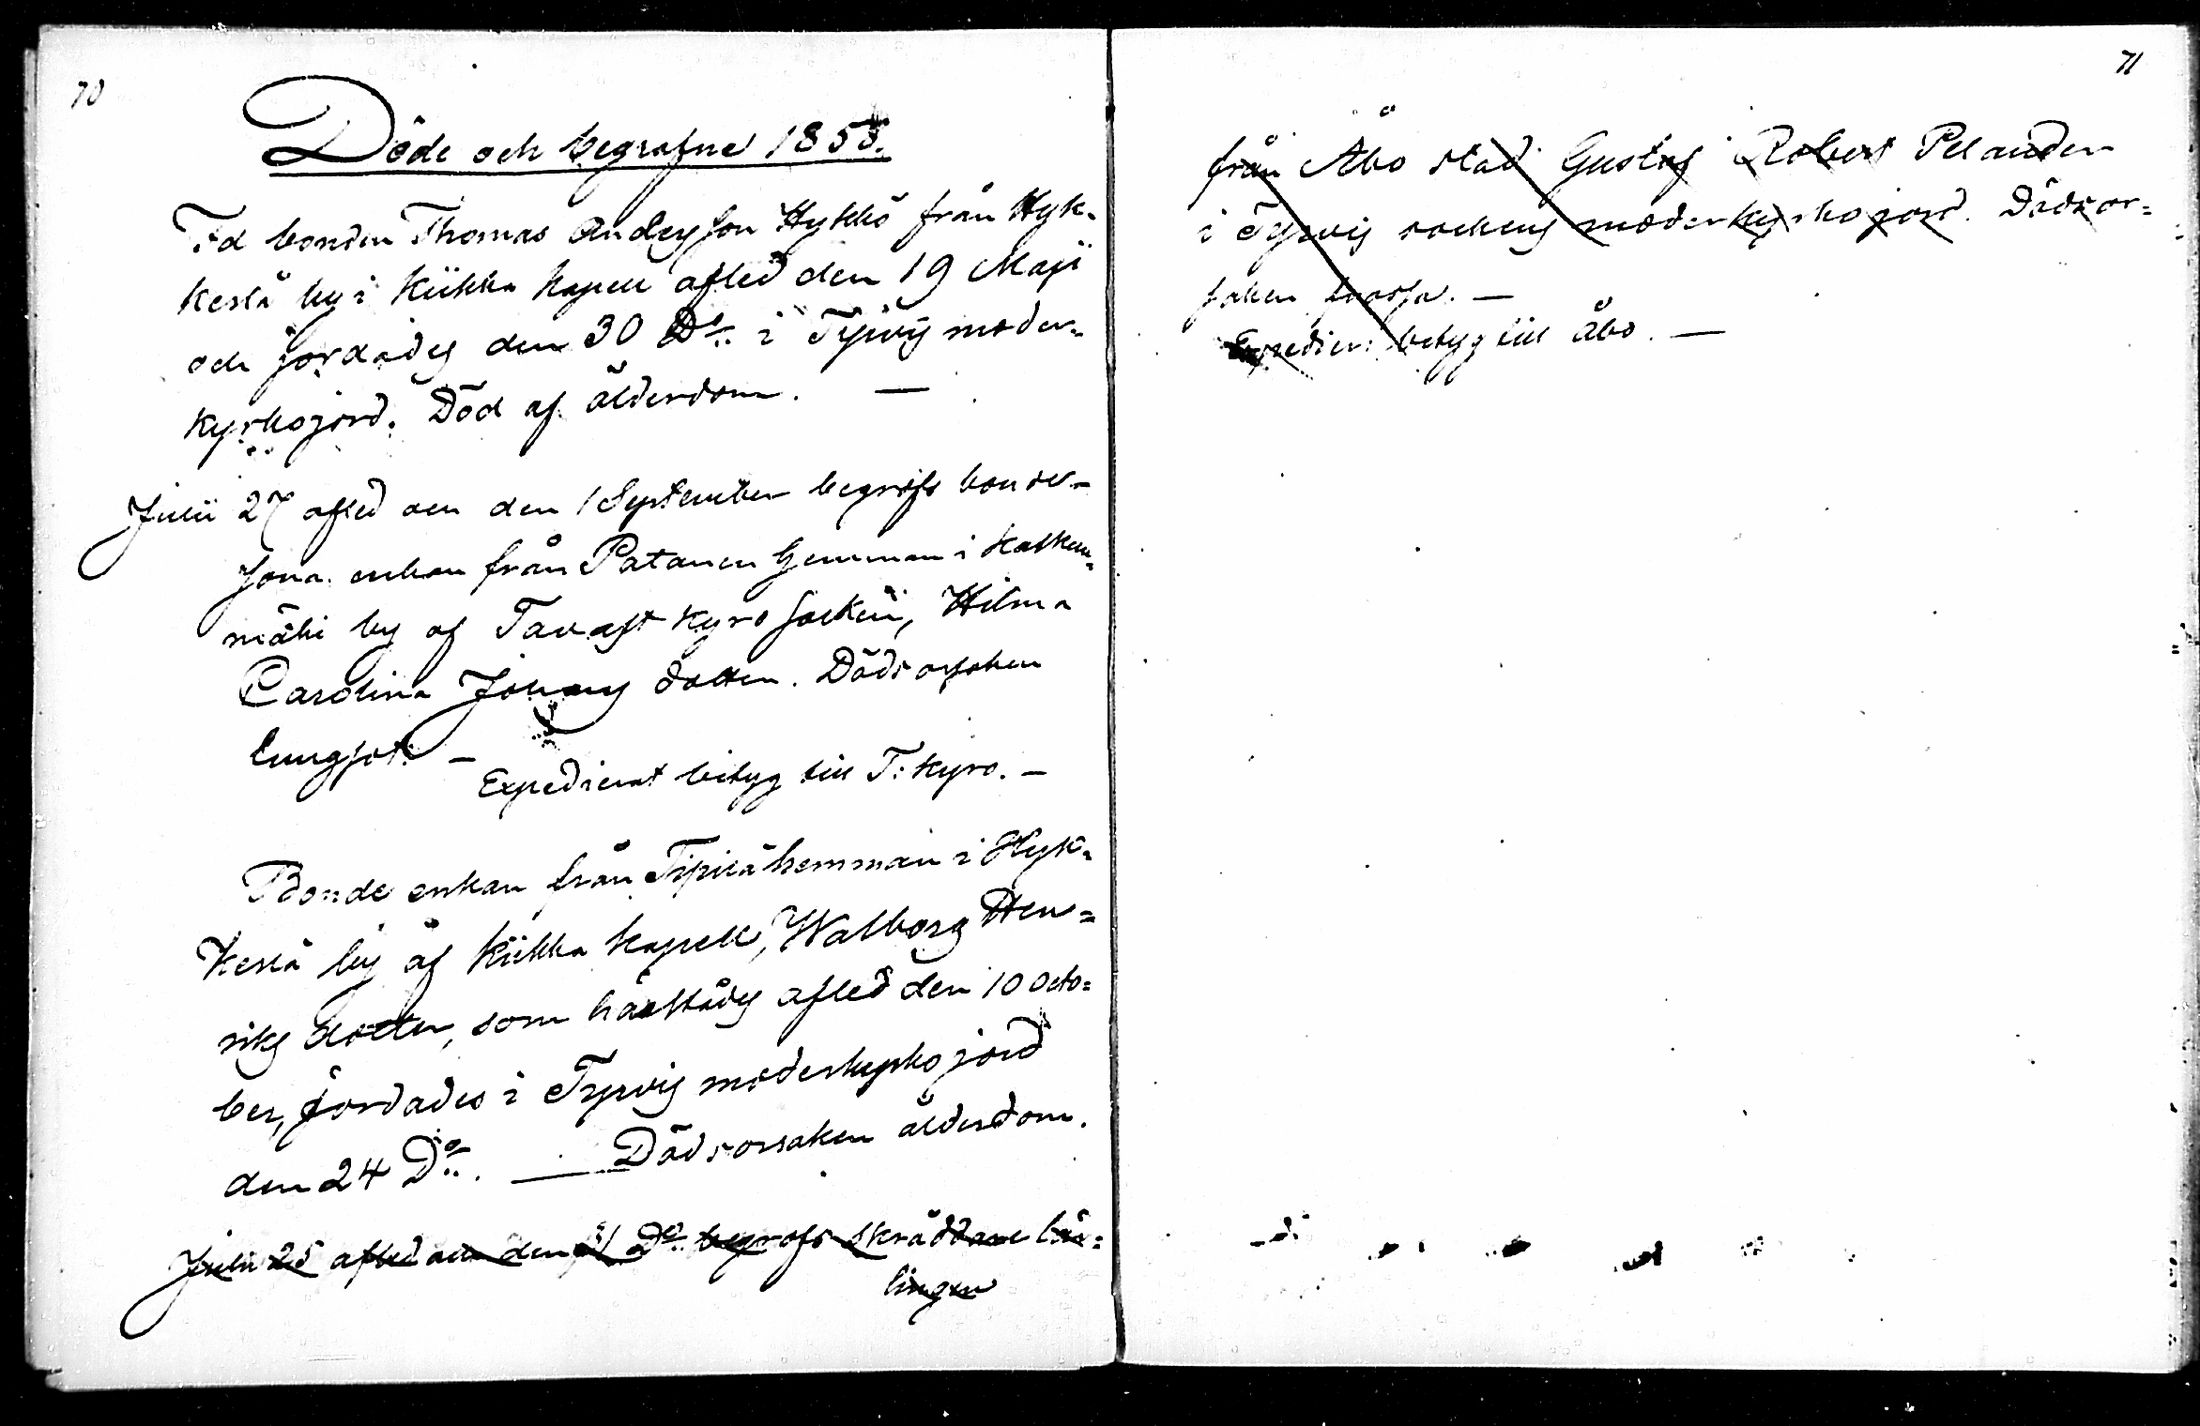 70
Döde och begrafne 1858.
F.d bonden Thomas Andersson Hykkö från Hyk-
kelä by i Kiikka kapell afled den 19 Maji
och jordades den 30 Do i Tyrvis moder-
kyrkojord. Död af ålderdom. —
Julii 27 afled och den 1 September begrofs bonde-
enkan från Patanen hemman i
mäki by af Tavastkyro socken, Wilma
Carolina Johans dotter. Dödsorsaken
lungsot. —
Expedierat betyg till T: kyro. —
Bonde enkan från Tipilä hemman i Hyk-
kelä by af Kiikka kapell, Walborg Hen=
riks dotter, som härstädes afled den 10 Octo=
ber, jordades i Tyrvis moderkyrko jord
den 24 Do. — Dödsorsaken ålderdom.
Julii 25 afled och den 31 Do begrofs skräddare lär=
lingen
71
från Åbo stad Gustaf Robert Pelander
i Tyrvis sockens moderkyrko jord. Dödsor=
saken frossa. —
Expedier: betyg till Åbo. —